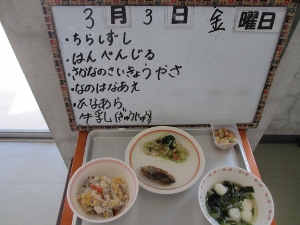 3月3日金曜日
・ちらしずし
・はんぺんじる
・さかなのさいきょうやき
・なのはなあえ
・ひなあられ
牛乳(ぎゅうにゅう)